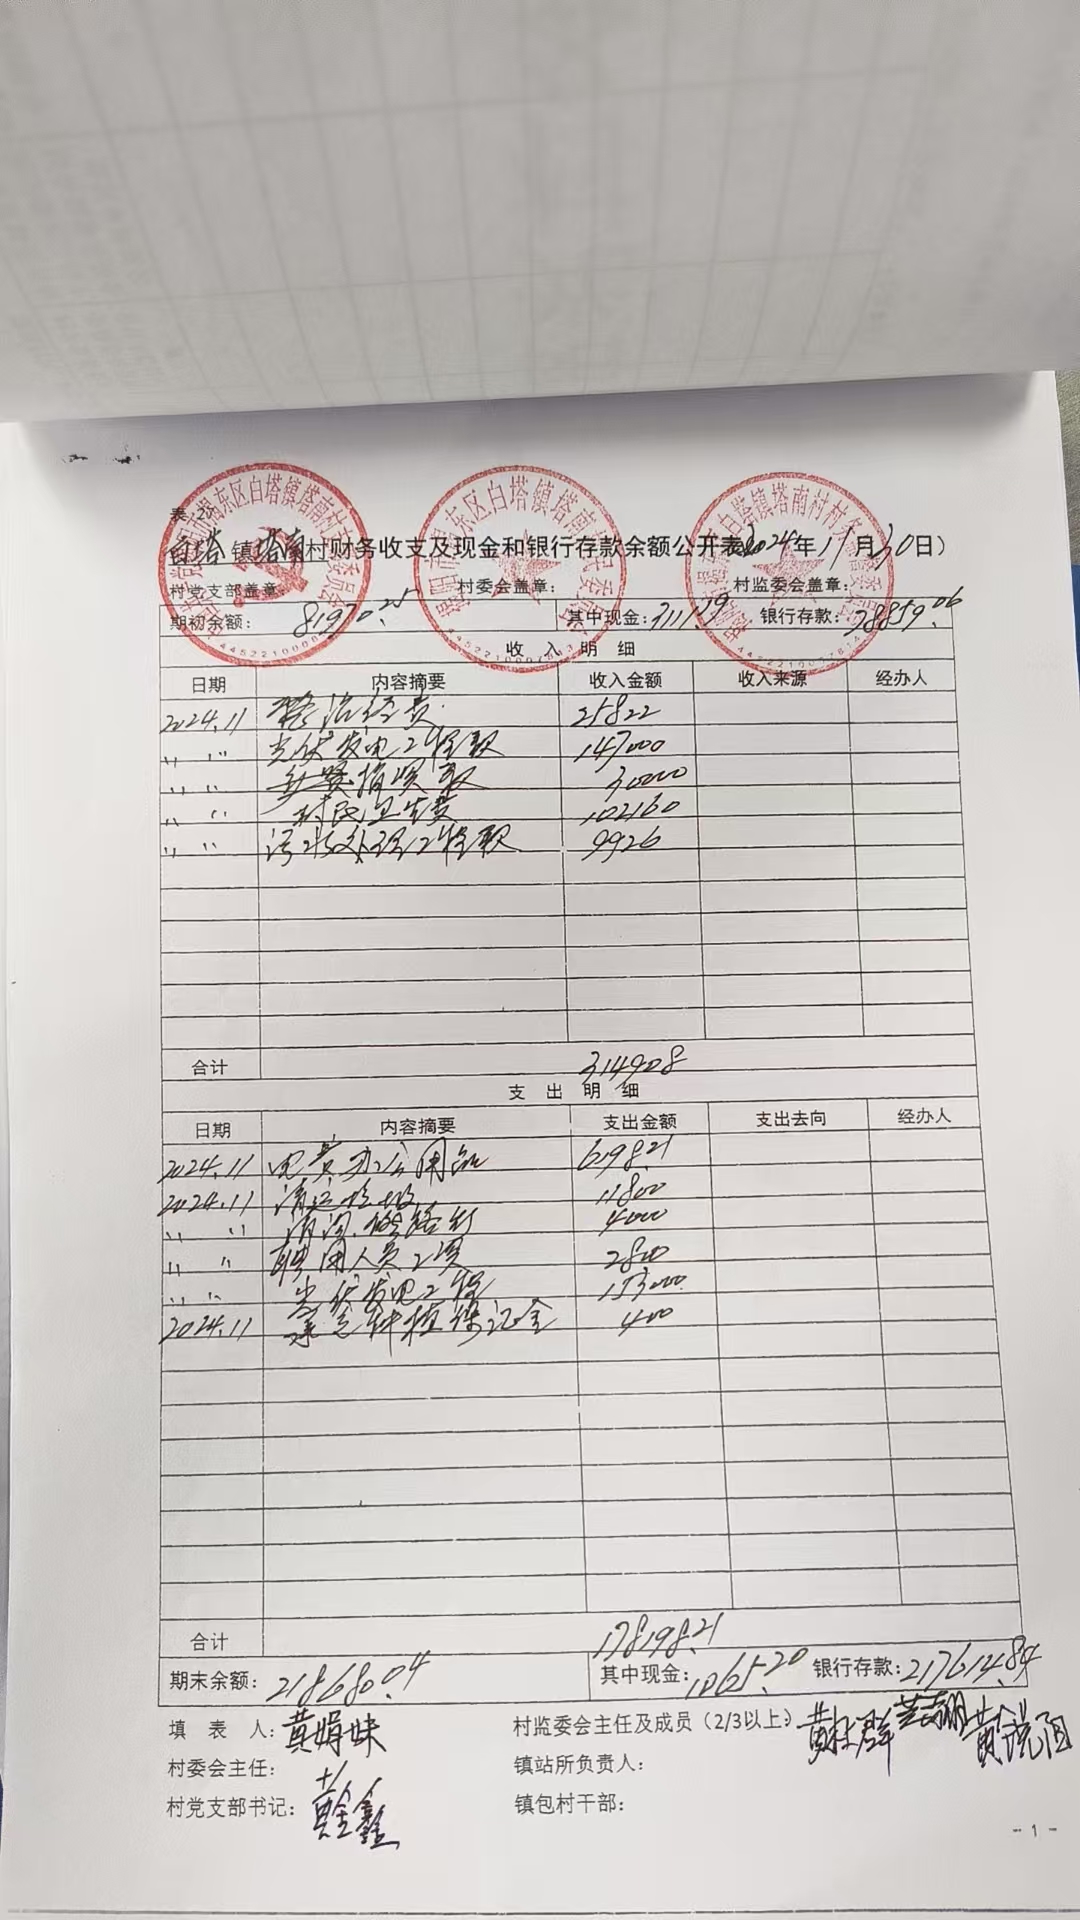 表 2:
白塔 镇 塔南 村财务收支及现金和银行存款余额公开表(2024年11月30日)
村党支部盖章: 村委会盖章: 村监委会盖章:
期初余额: 81970.25 其中现金:3111.19 银行存款:78859.06
收 入 明 细
日期 内容摘要 收入金额 收入来源 经办人
2024.11 经费 25822
〃 〃 光伏发电工程款 147000
〃 〃 乡贤捐资款 30000
〃 〃 村民卫生费 102160
〃 〃 污水处理工程款 9926
合计 314908
支 出 明 细
日期 内容摘要 支出金额 支出去向 经办人
2024.11 电费办公用品 6198.21
2024.11 清运垃圾 11800
〃 〃 清沟.修路灯 4000
〃 〃 聘用人员工资 2800
〃 〃 光伏发电工程 153000
2024.11 种植保证金 400
合计 178198.21
期末余额: 218680.04 其中现金:1065.20 银行存款:217614.84
填 表 人: 黄娟妹 村监委会主任及成员(2/3以上):
村委会主任: 镇站所负责人:
村党支部书记: 黄金鑫 镇包村干部:
- 1 -